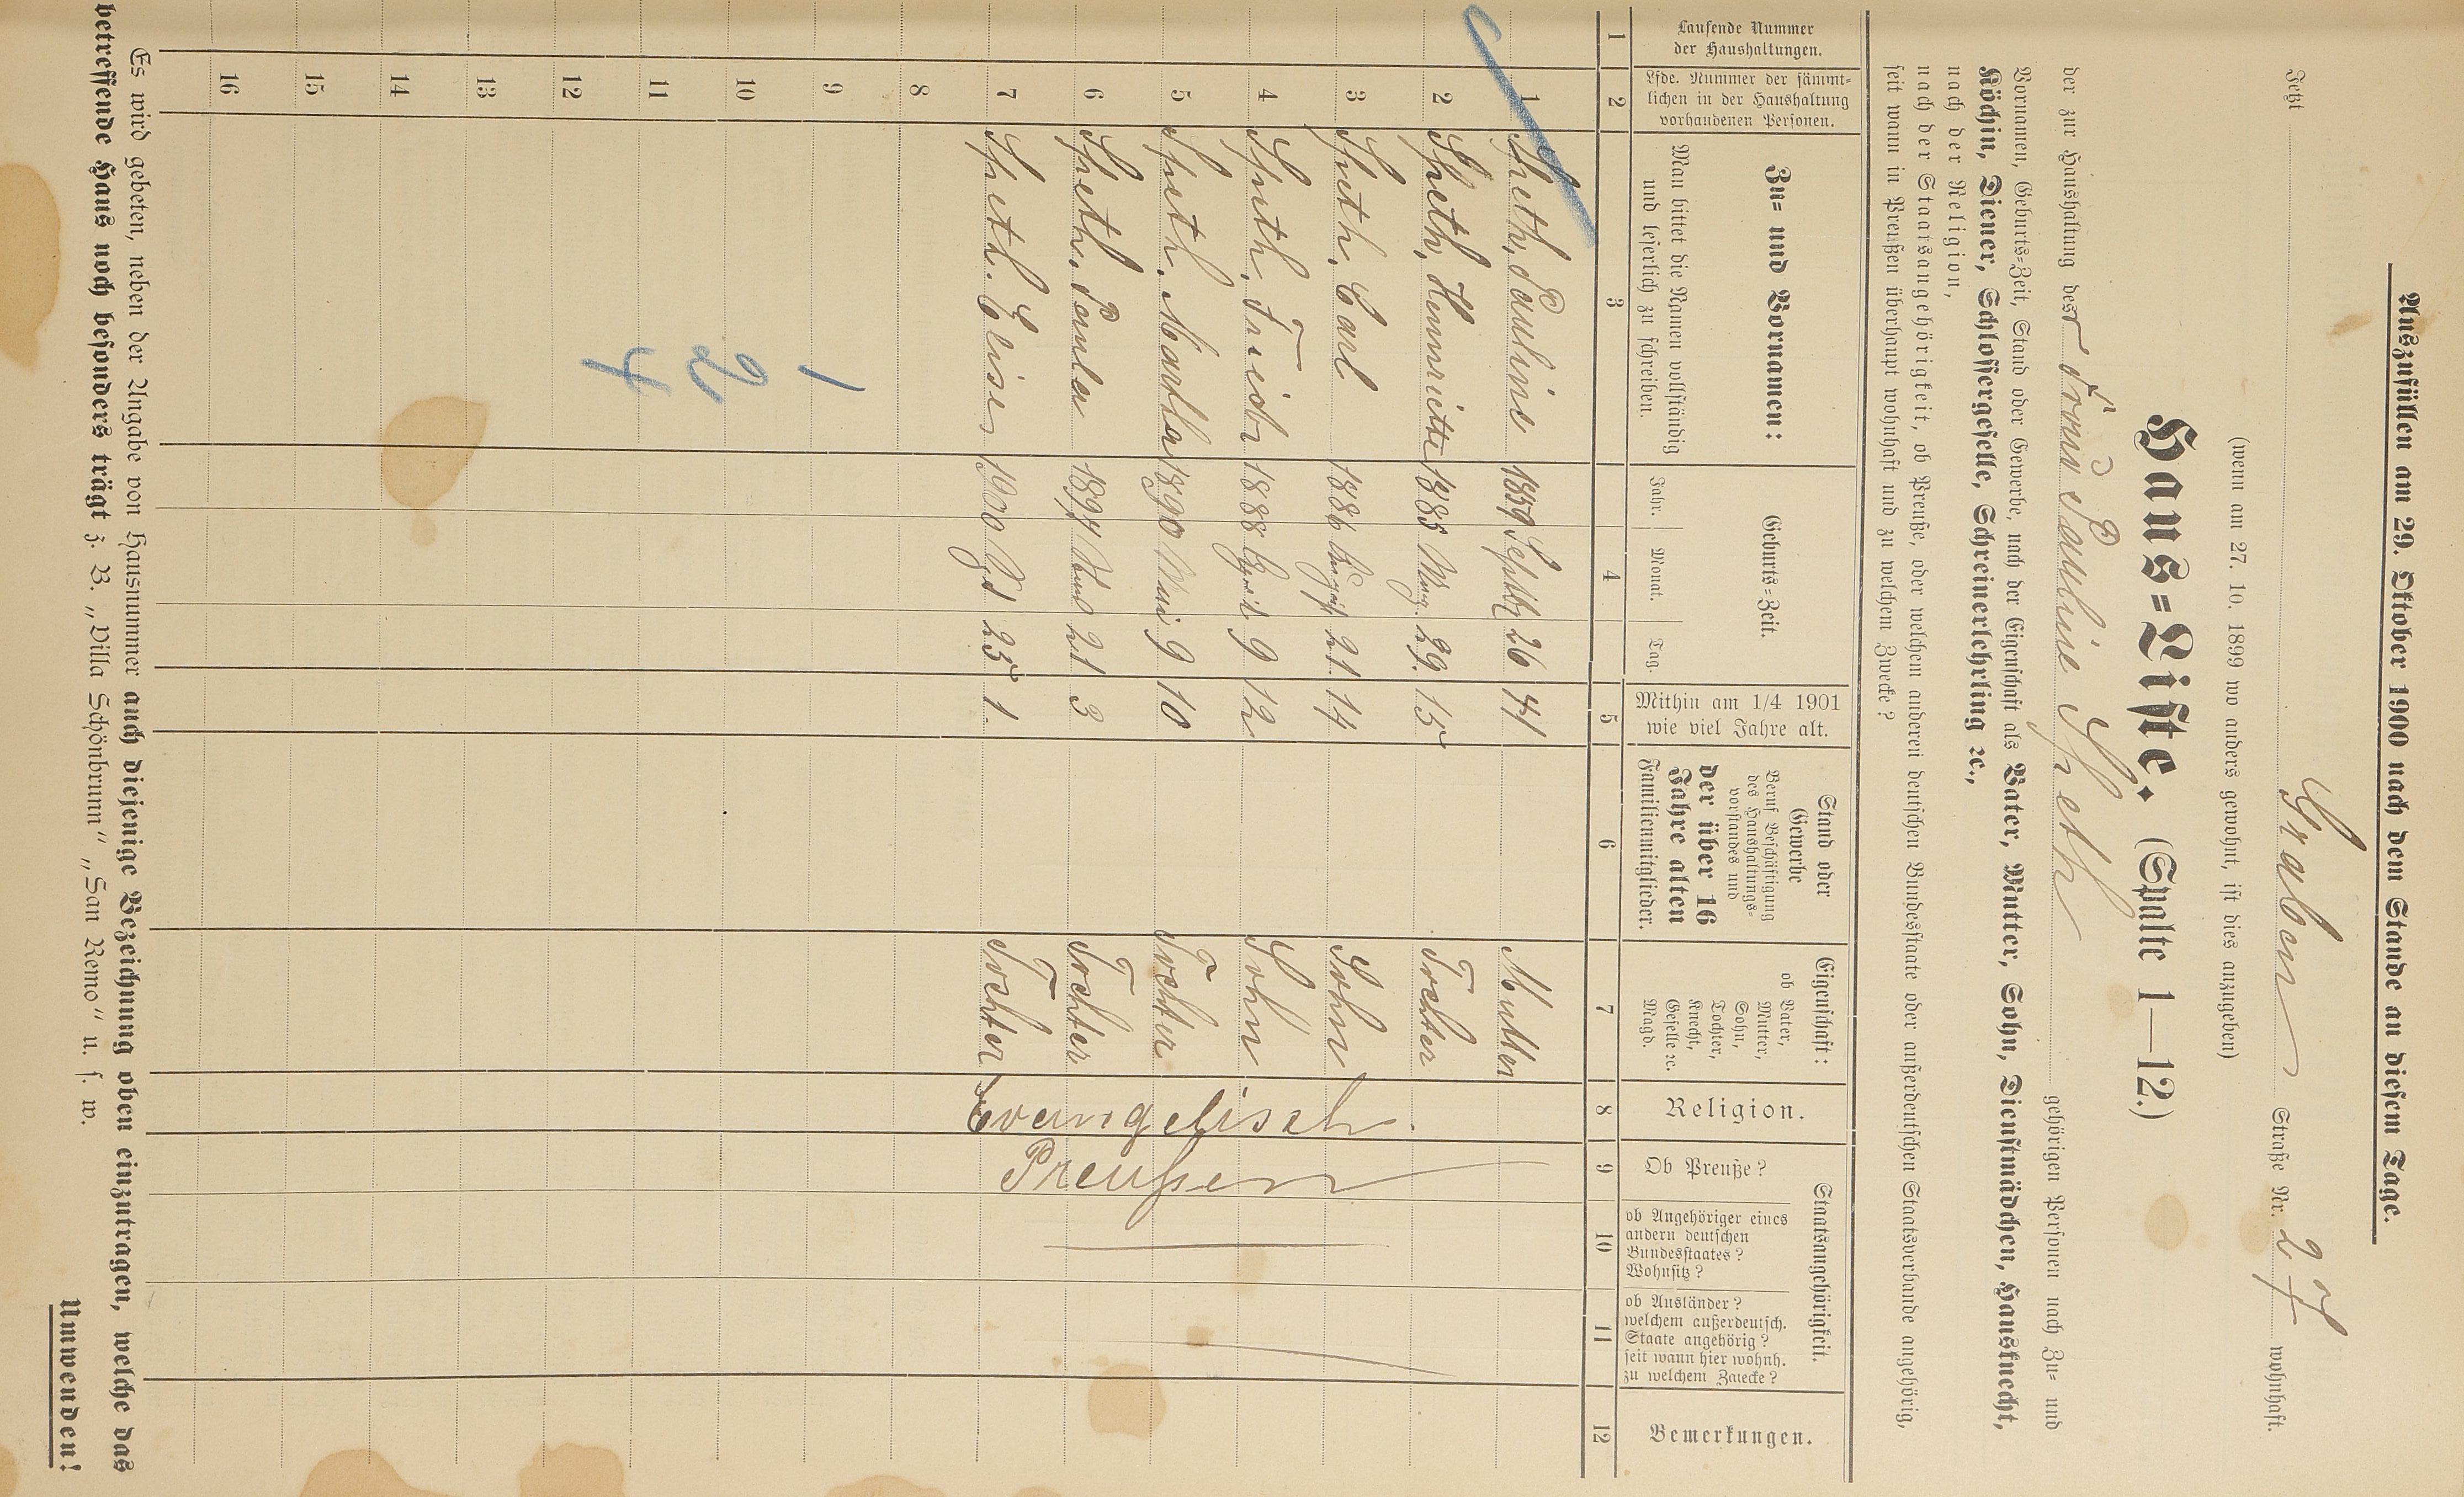 Auszufüllen am 29. Oktober 1900 nach dem Stande an diesem Tage.
Jetzt Graben Straße Nr. 27 wohnhaft.
(wenn am 27. 10. 1899 wo anders gewohnt, ist dies anzugeben)
Haus=Liste. (Spalte 1—12.)
der zur Haushaltung der Frau Pauline Speth gehörigen Personen nach Zu= und
Vornamen, Geburts=Zeit, Stand oder Gewerbe, nach der Eigenschaft als Vater, Mutter, Sohn, Dienstmädchen, Hausknecht,
Köchin, Diener, Schlossergeselle, Schreinerlehrling ꝛc.,
nach der Religion,
nach der Staatsangehörigkeit, ob Preuße, oder welchen anderen deutschen Bundesstaate oder außerdeutschen Staatsverbande angehörig,
seit wann in Preußen überhaupt wohnhaft und zu welchem Zwecke?
Laufende Nummer
der Haushaltungen.
Lfde. Nummer der sämmt=
lichen in der Haushaltung
vorhandenen Personen.
Zu= und Vornamen:
Man bittet die Namen vollständig
und leserlich zu schreiben.
Geburts=Zeit.
Jahr. Monat. Tag.
Mithin am 1/4 1901
wie viel Jahre alt.
Stand oder
Gewerbe
Beruf Beschäftigung
des Haushaltungs=
vorstandes und
der über 16
Jahre alten
Familienmitglieder.
Eigenschaft:
ob Vater,
Mutter,
Sohn,
Tochter,
Knecht,
Geselle ꝛc.
Magd.
Religion.
Staatsangehörigkeit.
Ob Preuße?
ob Angehöriger eines
andern deutschen
Bundesstaates?
Wohnsitz?
ob Ausländer?
welchem außerdeutsch.
Staate angehörig?
seit wann hier wohnh.
zu welchem Zwecke?
Bemerkungen.
1 2 3 4 5 6 7 8 9 10 11 12
1 Speth, Pauline 1859 Septbr 26 41 Mutter
2 Speth, Hennriette 1885 29. 15 Tochter
3 Speth, Carl 1886 August 21. 14 Sohn
4 Speth, Friedr 1888 April 9 12 Sohn
5 Speth, Martha 1890 Mai 9 10 Tochter
6 Speth, Paula 1897 21 3 Tochter
7 Speth, Elise 1900 25 1. Tochter
Evangelisch.
Preußen
8
9
10
11
12
13
14
15
16
1
2
4
Es wird gebeten, neben der Angabe von Hausnummer auch diejenige Bezeichnung oben einzutragen, welche das
betreffende Haus noch besonders trägt z. B. „Villa Schönbrunn“ „San Remo“ u. s. w.
Umwenden!